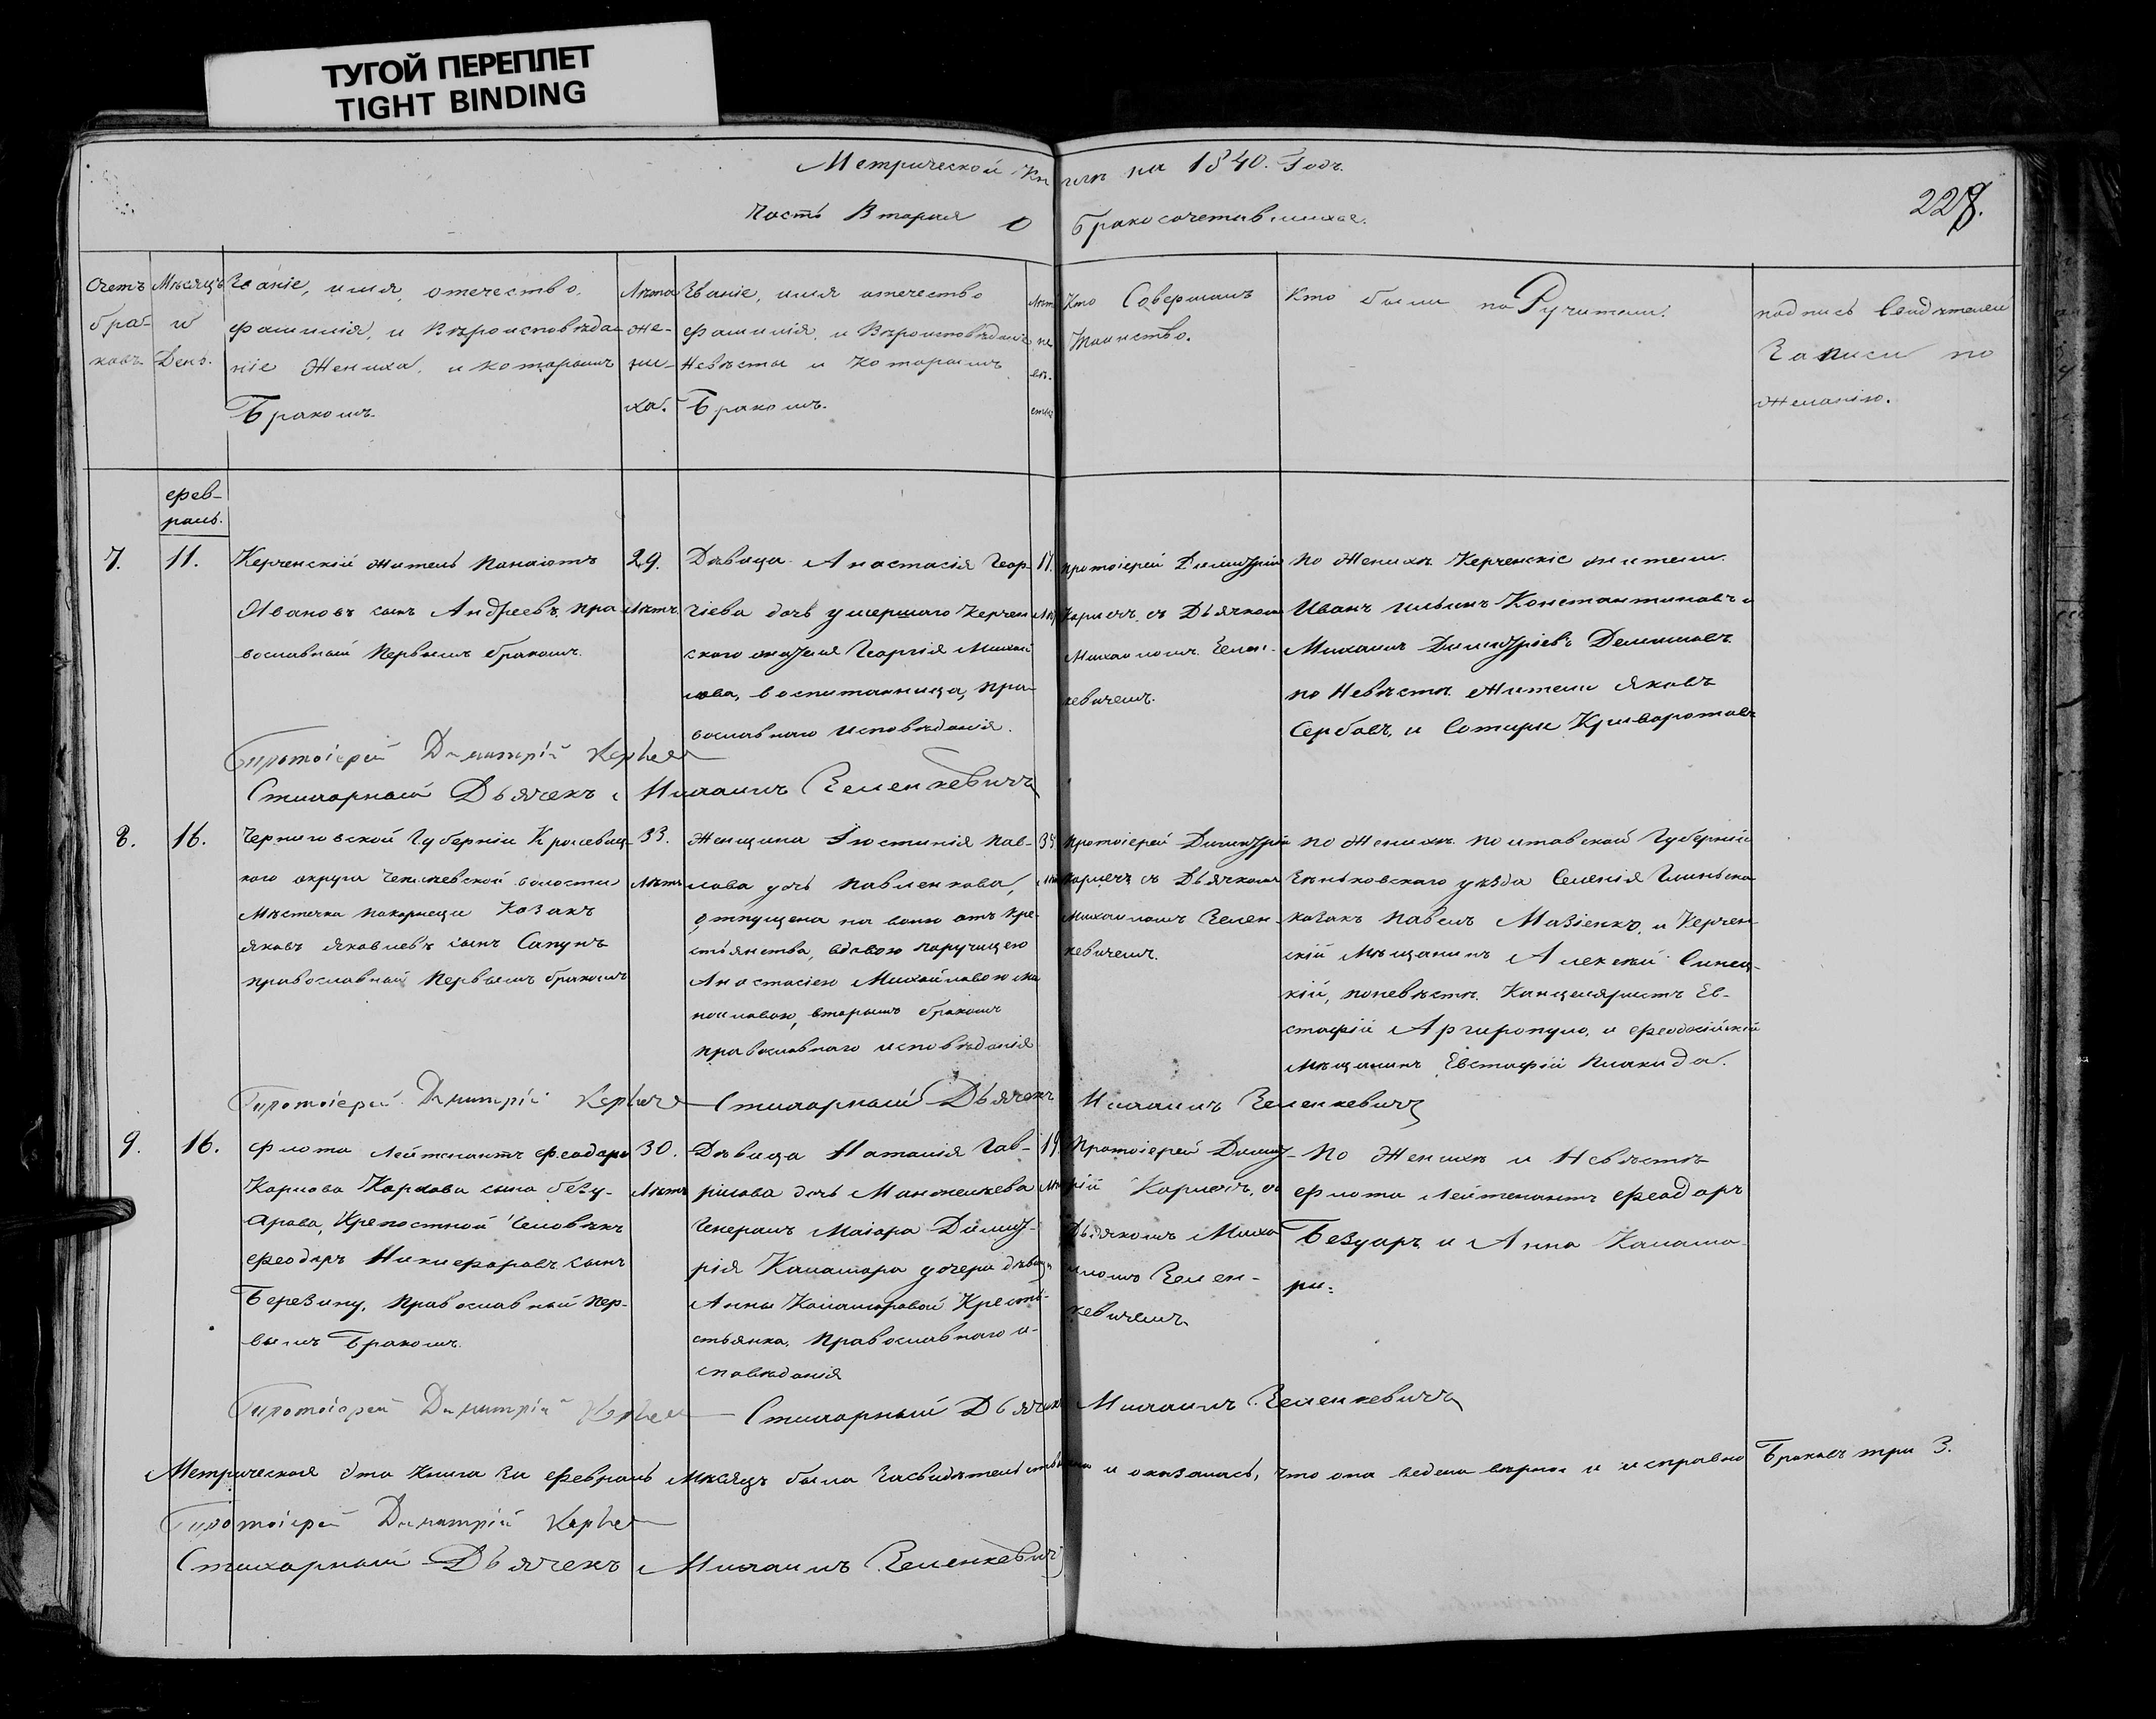 ТУГОЙ ПЕРЕПЛЕТ
TIGHT BINDING
Метрической Книги на 1840. Годъ.
Часть Вторая О Бракосочетавшихся.
228.
Счетъ браковъ.
Мѣсяцъ и День.
Званіе, имя, отечество,
фамилія, и Вѣроисповѣда-
ніе Жениха, и которымъ
Бракомъ.
Лѣта жениха.
Званіе, имя отечество
фамилія, и Вѣроисповѣданіе
Невѣсты и которымъ
Бракомъ.
Лѣта невѣсты
Кто Совершалъ
Таинство.
Кто были поРучители.
подпись Свидѣтелей
Записи по
желанію.
фев-
раль.
7.
11.
Керченскій житель Панаіотъ
Ивановъ сынъ Андреевъ, пра-
вославный первымъ бракомъ.
29.
Лѣтъ
Дѣвица Анастасія Геор-
гіева дочь умершаго Керчен
скаго жителя Георгія Михай
лова, воспитанница, пра-
вославнаго исповѣданія.
17.
протоіерей Димитрій
Корнечъ, съ Дьячкомъ
Михаиломъ Зелен-
кевичемъ.
по Женихѣ Керченскіе жители.
Иванъ Ильинъ Константиновъ и
Михаилъ Димитріевъ
по Невѣстѣ жители Яковъ
Сербовъ, и Сотири Криворотовъ
Протоіерей Димитрій
Стихарный Дьячекъ Михаилъ Зеленкевичъ
8.
16.
Черниговской Губерніи Кролевец-
каго округа волости
Мѣстечка Покорщици Козакъ
Яковъ Яковлевъ сынъ Сапунъ
православный первымъ бракомъ
33.
Лѣтъ
Женщина Іюстинія Пав-
лова дочь Павленкова,
отпущена на волю отъ кре-
стьянства, вдовою поручицею
Анастасіею Михайловою Ма
нойловою, вторымъ бракомъ
православнаго исповѣданія
протоіерей Димитрій
Корнечъ съ Дьячкомъ
Михаиломъ Зелен-
кевичемъ.
по Женихѣ Полтавской Губерніи
Зѣньковскаго уѣзда Селенія
козакъ Павелъ Мазіенко, и Керчен-
скій Мѣщанинъ Алексѣй Синец-
кій, по невѣстѣ Канцеляристъ Ев-
стафій Аргиропуло, и феодосійскій
мѣщанинъ Евстафій Плакида.
Протоіерей Димитрій Стихарный Дьячекъ Михаилъ Зеленкевичъ
9.
16.
флота Лейтенанта феодора
Карлова сына Безу-
арова, Крепостной Человѣкъ
феодоръ Никифоровъ сынъ
Березину, православный пер-
вымъ Бракомъ.
30.
Лѣтъ
Дѣвица Наталія Гав-
рилова дочь Манжелкева
Генералъ Маіора Димит-
рія Каламара дочери дѣвицы
Анны Каламаровой Кресть-
стьянка, православнаго и-
сповѣданія
19.
Протоіерей Димит-
рій Корнечъ, съ
Дьячкомъ Миха
иломъ Зелен-
кевичемъ
По Женихѣ и Невѣстѣ
флота Лейтенантъ феодоръ
Безуаръ и Анна Калама-
ри.
Протоіерей Димитрій Стихарный Дьячекъ Михаилъ Зеленкевичъ
Метрическая эта Книга за февраль мѣсяцъ была засвидѣтельствована и оказалась, что она ведена вѣрно и исправно Браковъ три 3.
Протоіерей Димитрій
Стихарный Дьячекъ Михаилъ Зеленкевичъ